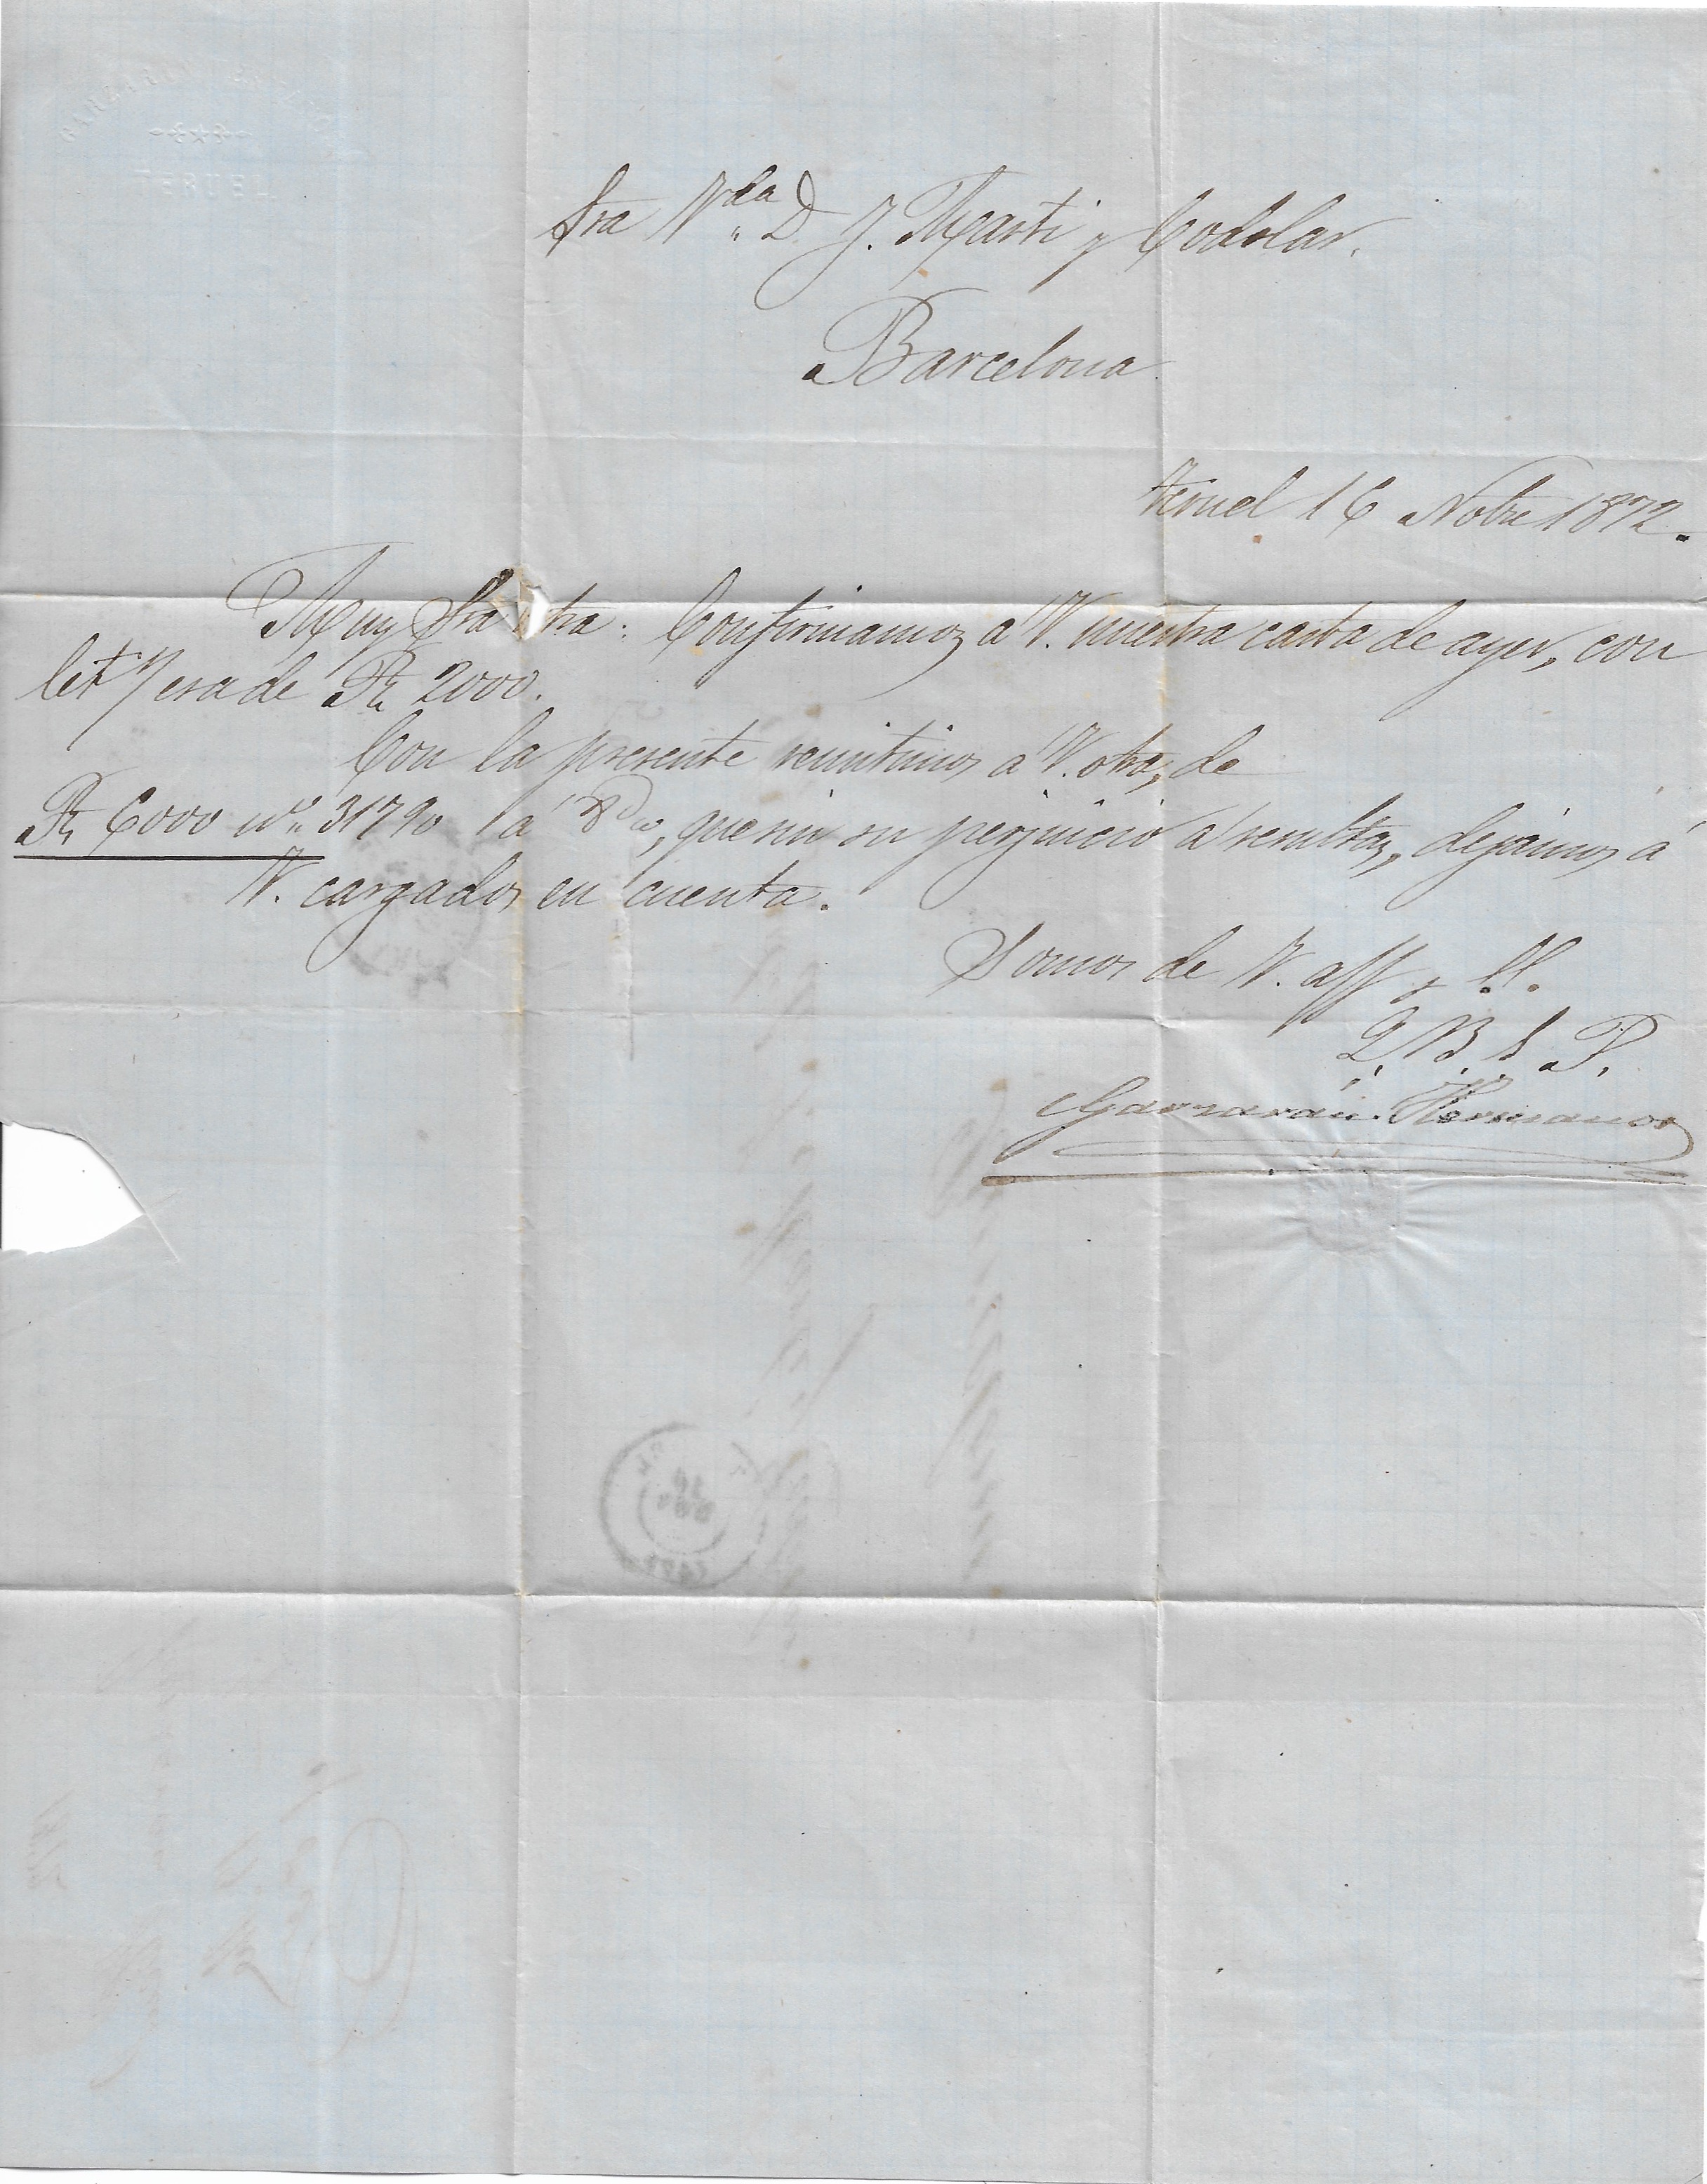 Sra Vda D. J. Marti y Codolar.
Barcelona
Teruel 16 Nobre 1872.
Muy Sra ntra: Confirmamos a V. nuestra carta de ayer, con
let/ esa de Rs 2000.
Con la presente remitimos a V. otra, de
Rs 6000 no 31790 a 8 d/v, que sin su perjuicio a/ resultas, dejamos á
V. cargados en cuenta.
Somos de V. aff y SS.
Q. B. S. P.
Garzarán Hermanos
TERUEL